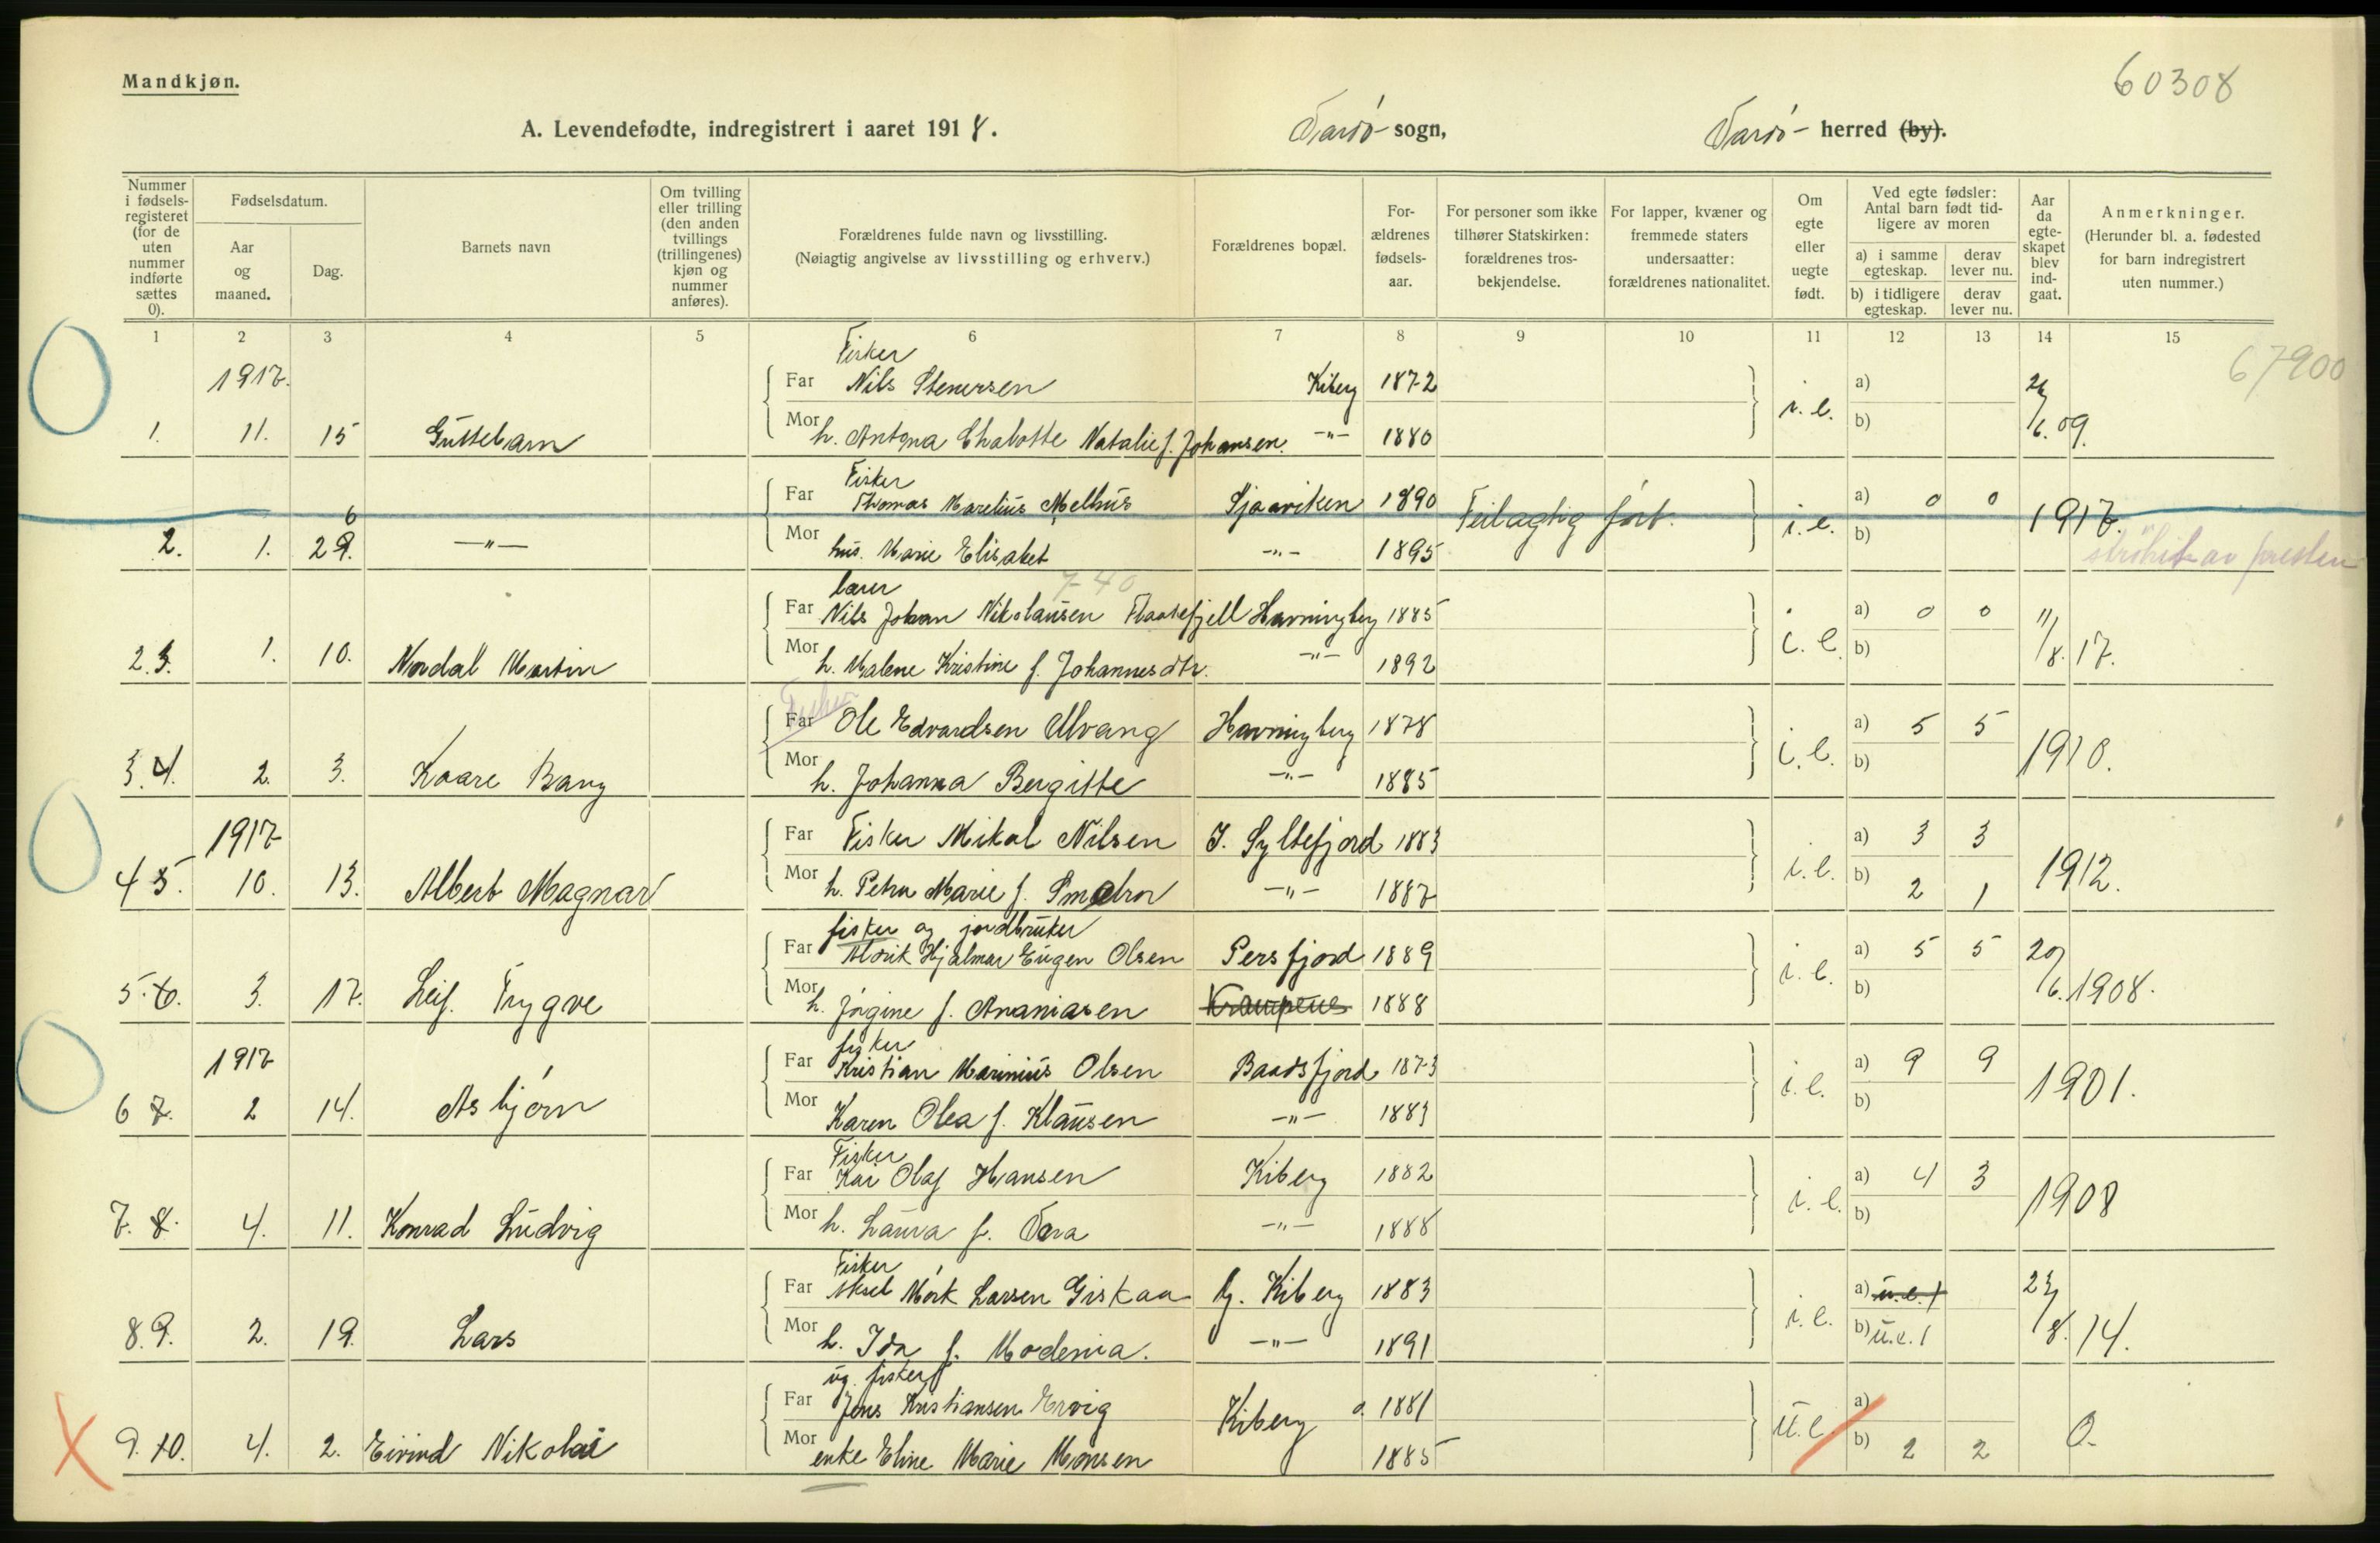 Mandkjøn.
60308
A. Levendefødte, indregistrert i aaret 1918. Vardö sogn, Vardö herred (by).
Nummer i fødselsregisteret (for de uten nummer indførte sættes 0).
Fødselsdatum.
Aar og maaned.
Dag.
Barnets navn
Om tvilling eller trilling (den anden tvillings (trillingenes) kjøn og nummer anføres).
Forældrenes fulde navn og livsstilling.
(Nøiagtig angivelse av livsstilling og erhverv.)
Forældrenes bopæl.
Forældrenes fødselsaar.
For personer som ikke tilhører Statskirken: forældrenes trosbekjendelse.
For lapper, kvæner og fremmede staters undersaatter: forældrenes nationalitet.
Om egte eller uegte født.
Ved egte fødsler: Antal barn født tidligere av moren
a) i samme egteskap.
derav lever nu.
b) i tidligere egteskap.
derav lever nu.
Aar da egteskapet blev indgaat.
Anmerkninger.
(Herunder bl. a. fødested for barn indregistrert uten nummer.)
1 2 3 4 5 6 7 8 9 10 11 12 13 14 15
67900
Fisker
1917. Far Nils Stenersen Kiberg 1872 i.e. a) 26/6.09.
1. 11. 15 Guttebarn Mor h. Antona Chalotte Natalie f. Johansen. -"- 1880 b)
Fisker
Far Thomas Marelius Melhus Sjaaviken 1890 Feilagtig fört. i.e. a) 0 0 1917.
2. 1. 29. 6 -"- Mor hus. Marie Elisabet -"- 1895 b) strøket av presten
lærer 7-40
Far Nils Johan Nikolausen Flaatefjell Havningberg 1885 i.e. a) 0 0 11/8.17.
2.3. 1. 10. Nordal Martin Mor h. Malene Kristine f. Johannesdtr. -"- 1892 b)
Fisker
Far Ole Edvardsen Ulvang Havningberg 1878 i.e. a) 5 5 1910.
3.4. 2. 3. Kaare Bang Mor h. Johanna Bergitte -"- 1885 b)
1917 Far Fisker Mikal Nilsen I. Syltefjord 1883 i.e. a) 3 3 1912.
4 5. 10. 13. Albert Magnar Mor h. Petra Marie f. -"- 1887 b) 2 1
fisker og jordbruker
Far Aldrik Hjalmar Eugen Olsen Persfjord 1889 i.e. a) 5 5 20/6.1908.
5.6. 3. 17. Leif Trygve Mor h. Jörgine f. Ananiasen Krampenes 1888 b)
fisker
1917 Far Kristian Marinius Olsen Baadsfjord 1873 i.e. a) 9 9 1901.
6 7. 2 14. Asbjörn Mor Karen Olea f. Klausen -"- 1883 b)
Fisker
Far Kai Olaf Hansen Kiberg 1882 i.e. a) 4 3 1908
7. 8. 4. 11. Konrad Ludvig Mor h. Laura f. Vara -"- 1888 b)
Fisker
Far Aksel Mörk Larsen Giskaa Y. Kiberg 1883 i.e. a) u.e.1 23/8.14.
8.9. 2. 19. Lars Mor h. Ida f. Modenia. -"- 1891 b) u.e.1
ug. fisker
Far Jens Kristiansen Ervig Kiberg 1881 u.e. a) 0.
9.10. 4. 2. Eivind Nikolai Mor enke Eline Marie Monsen 1885 b) 2 2